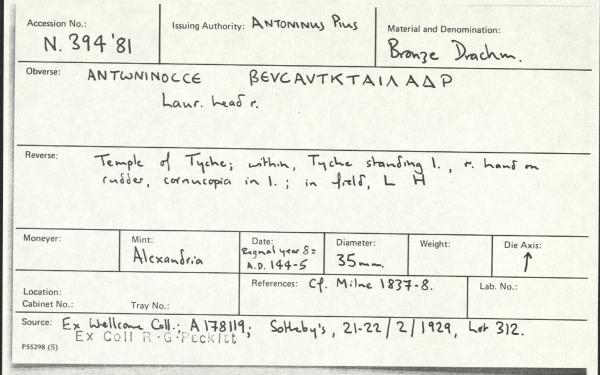 Accession No.: N. 394'81
Issuing Authority: ANTONINUS PIUS
Material and Denomination: Bronze Drachm.
Obverse: ΑΝΤѠΝΙΝΟϹϹΕ ΒΕVϹΑVΤΚΤΑΙΛΑΔΡ
Laur. head r.
Reverse: Temple of Tyche; within, Tyche standing l., r. hand on
rudder, cornucopia in l.; in field, L H
Moneyer:
Mint: Alexandria
Date: Regnal year 8 =
A.D. 144-5
Diameter: 35mm.
Weight:
Die Axis: ↑
Location:
Cabinet No.: Tray No.:
References: Cf. Milne 1837-8.
Lab. No.:
Source: Ex Wellcome Coll.; A178119; Sotheby's, 21-22/2/1929, Lot 312.
Ex Coll R·G·Peckitt
P55298 (S)